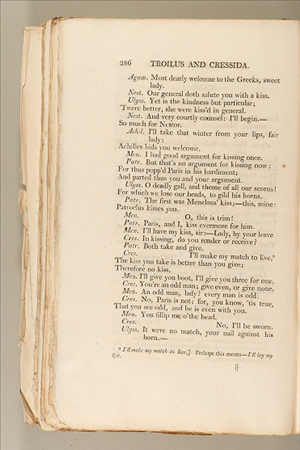 286 TROILUS AND CRESSIDA.
Agam. Most dearly welcome to the Greeks, sweet
lady.
Nest. Our general doth salute you with a kiss.
Ulyss. Yet is the kindness but particular;
'Twere better, she were kiss'd in general.
Nest. And very courtly counsel: I'll begin.—
So much for Nestor.
Achil. I'll take that winter from your lips, fair
lady:
Achilles bids you welcome.
Men. I had good argument for kissing once.
Patr. But that's no argument for kissing now:
For thus popp'd Paris in his hardiment;
And parted thus you and your argument.
Ulyss. O deadly gall, and theme of all our scorns!
For which we lose our heads, to gild his horns.
Patr. The first was Menelaus' kiss;—this, mine:
Patroclus kisses you.
Men. O, this is trim!
Patr. Paris, and I, kiss evermore for him.
Men. I'll have my kiss, sir:—Lady, by your leave.
Cres. In kissing, do you render or receive?
Patr. Both take and give.
Cres. I'll make my match to live,*
The kiss you take is better than you give;
Therefore no kiss.
Men. I'll give you boot, I'll give you three for one.
Cres. You're an odd man; give even, or give none.
Men. An odd man, lady? every man is odd.
Cres. No, Paris is not; for, you know, 'tis true,
That you are odd, and he is even with you.
Men. You fillip me o'the head.
Cres. No, I'll be sworn.
Ulyss. It were no match, your nail against his
horn.—
* I'll make my match to live,] Perhaps this means—I'll lay my
life.